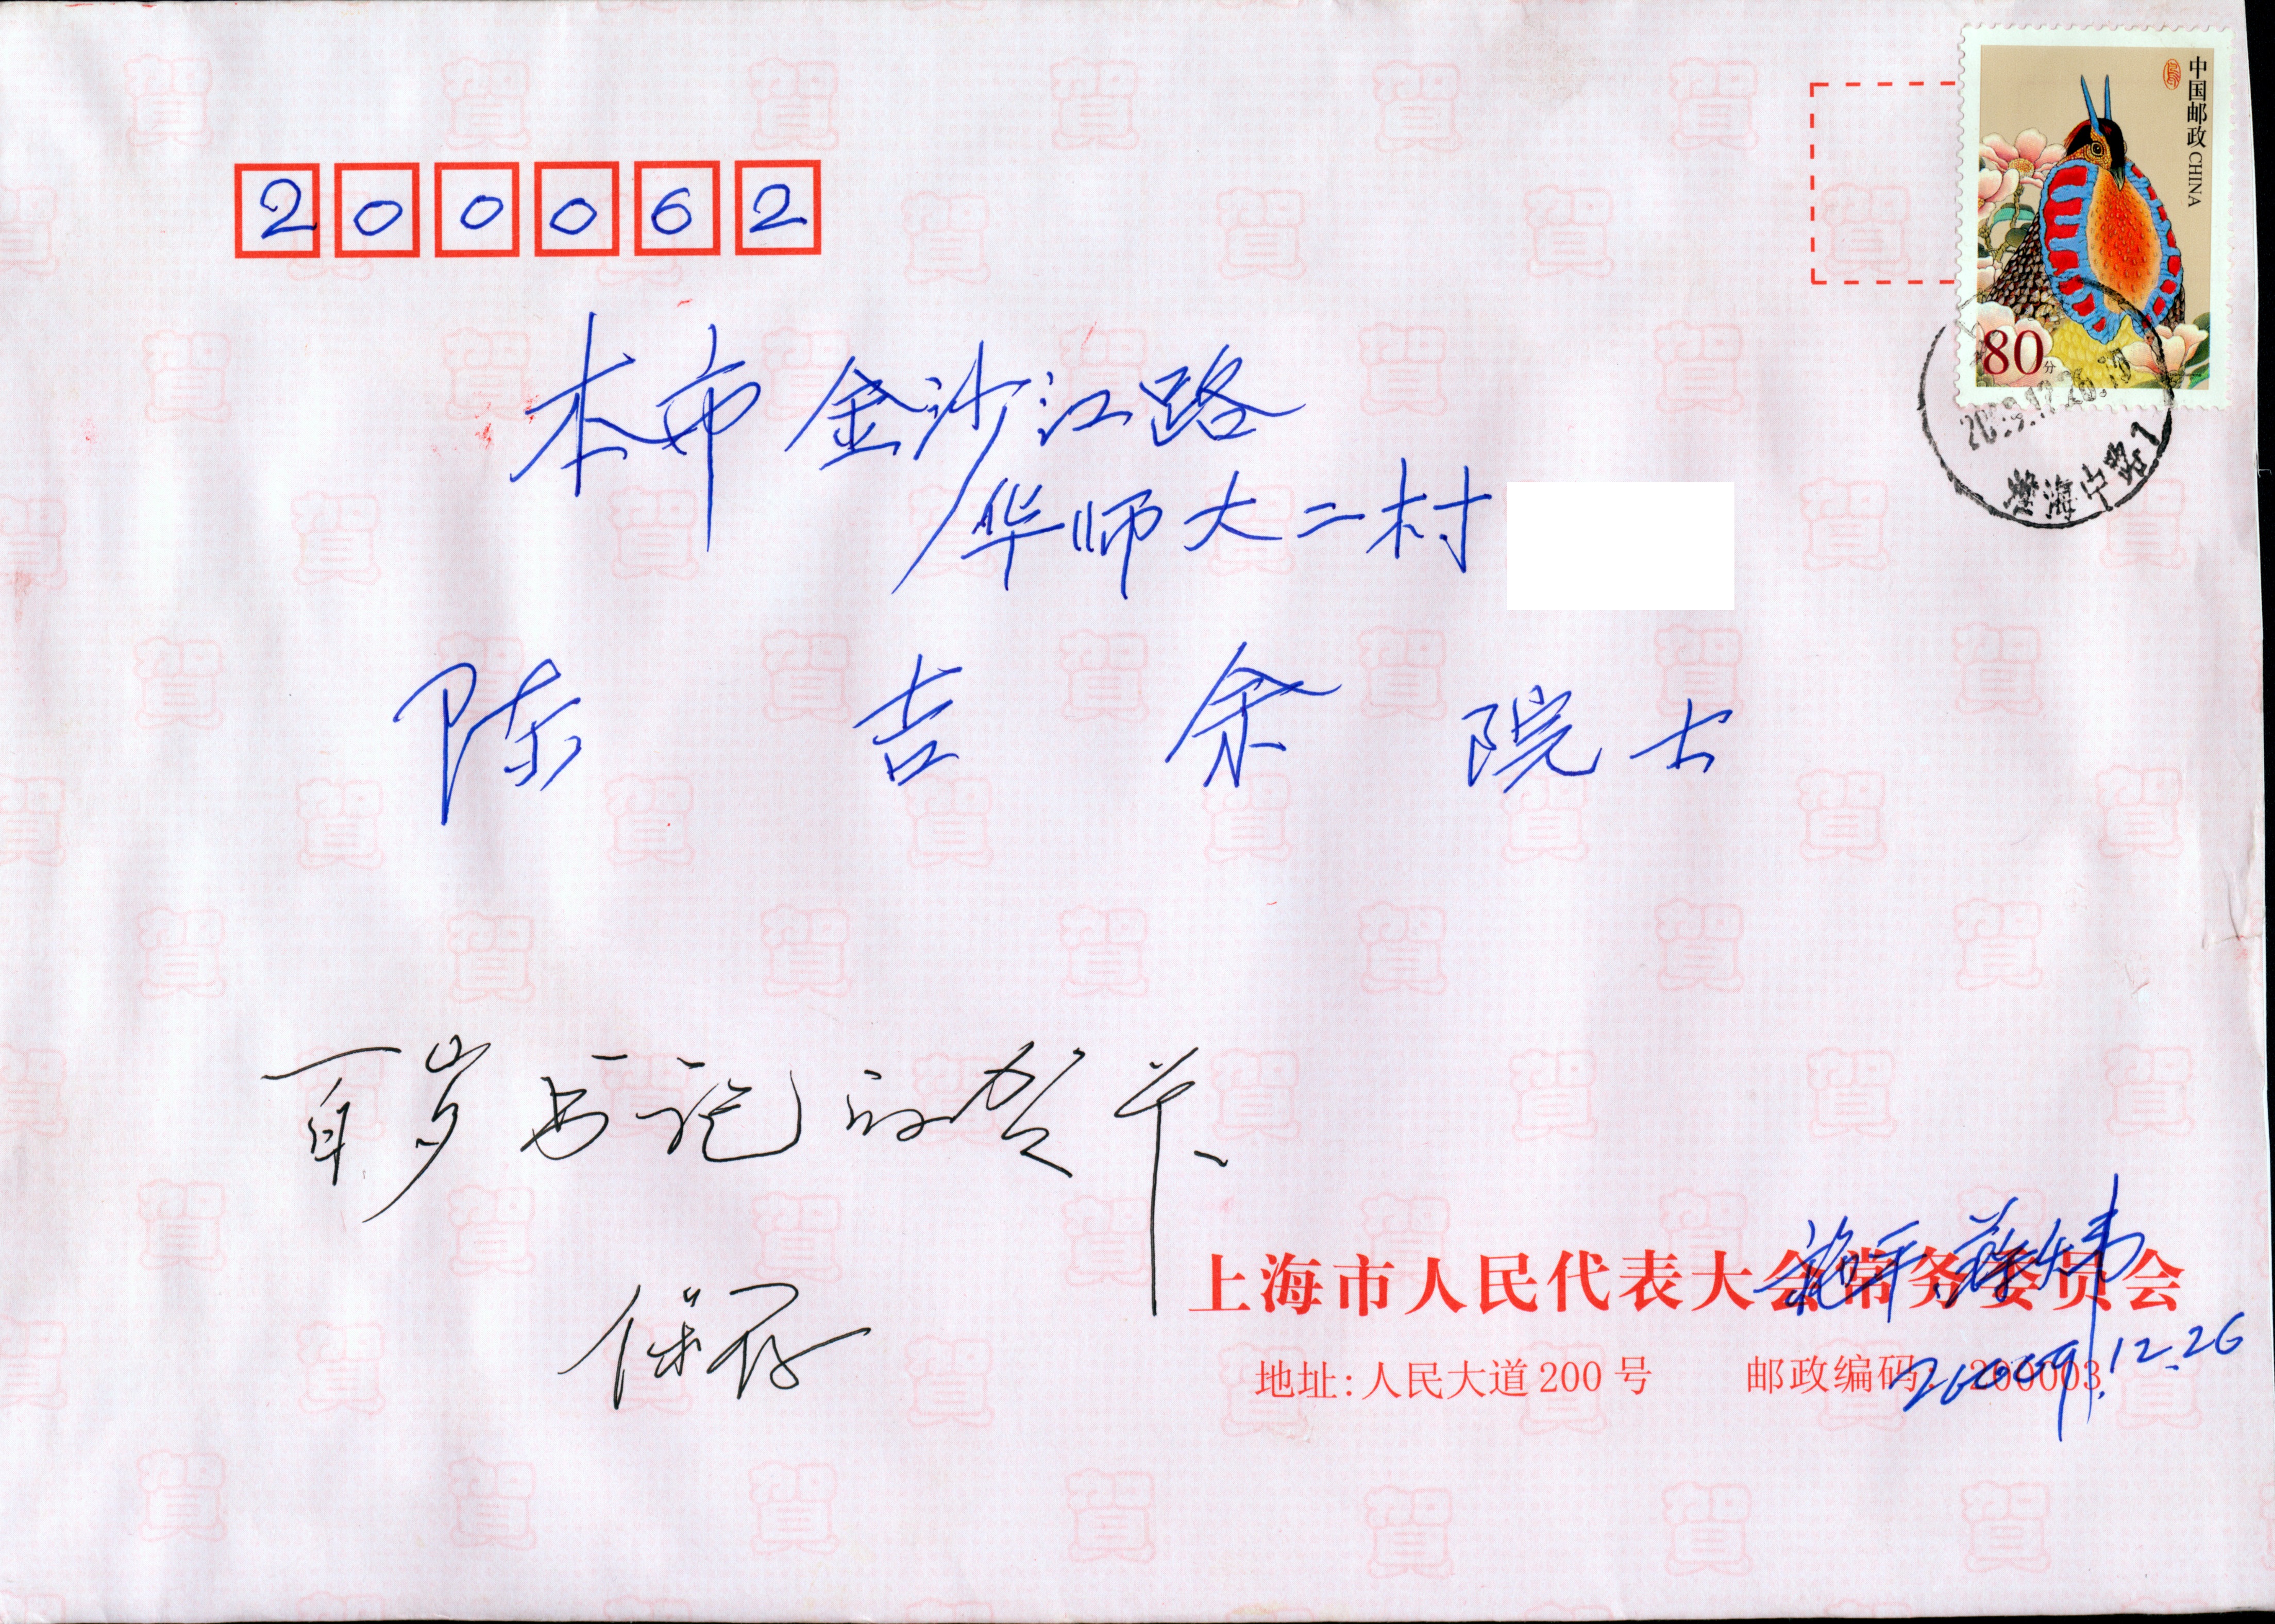 中国邮政 CHINA
80分
200062
本市金沙江路
华师大二村
陈吉余院士
百岁书记的贺卡
保存
上海市人民代表大会常务委员会
施平
地址:人民大道200号 邮政编码 200003
2009.12.26
淮海中路1
賀